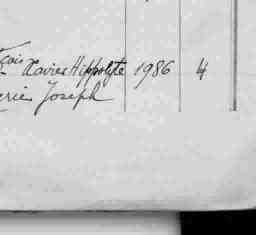 çois
Xavier Hippolyte 1986 4
erie Joseph